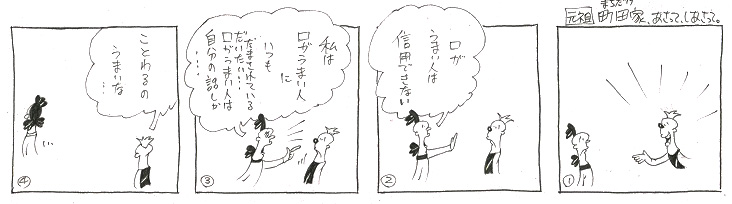 元祖 町田家、あさって、しあさって。
まちだけ
①
口が
うまい人は
信用できない
②
私は
口がうまい人
に
いつも
だまされている
だいたい…
口がうまい人は
自分の話しか
…
③
ことわるの
うまいな
…
④